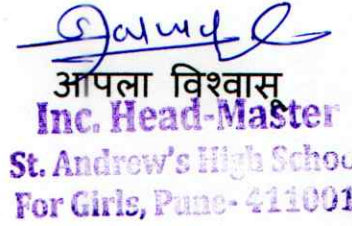 आपला विश्वासू
Inc. Head-Master
St. Andrew's High School
For Girls, Pune-411001